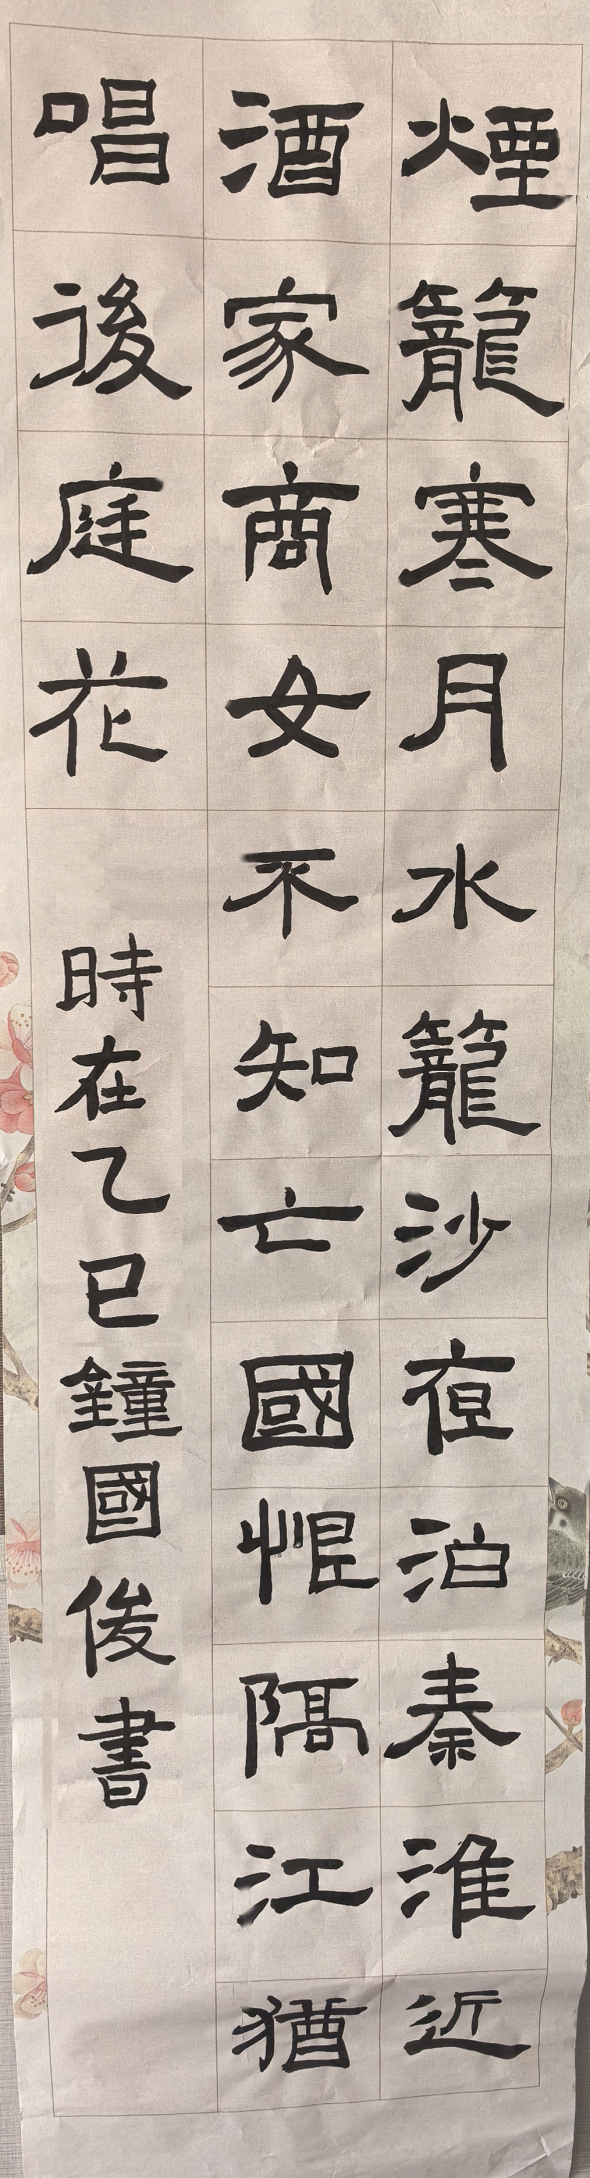 煙籠寒月水籠沙夜泊秦淮近
酒家商女不知亡國恨隔江猶
唱後庭花
時在乙巳鐘國俊書